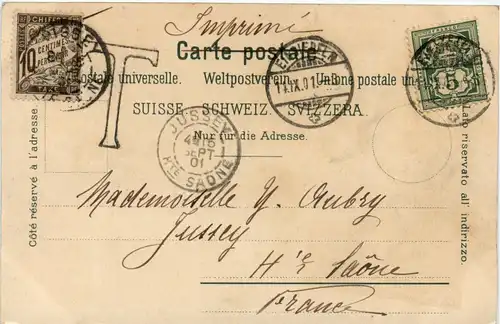 Imprimé
Carte postale.
Postale universelle. Weltpostverein. Unione postale un
SUISSE. SCHWEIZ. SVIZZERA.
Nur für die Adresse.
Côté réservé à l'adresse.
Lato riservato all' indirizzo.
CHIFFRE
10
CENTIMES
A PERCEVOIR
TAXE
JUSSEY
T
14.IX.01
FRANCO
5
JUSSEY
SEPT
01
HTE SAÔNE
Mademoiselle Y. Aubry
Jussey
Hte Saône
France